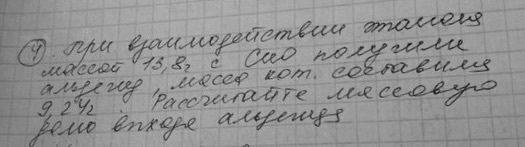 4. При взаимодействии этанола
массой 13,8г с CuO получили
альдегид, масса кот. составила
9,24г. Рассчитайте массовую
долю выхода альдегида